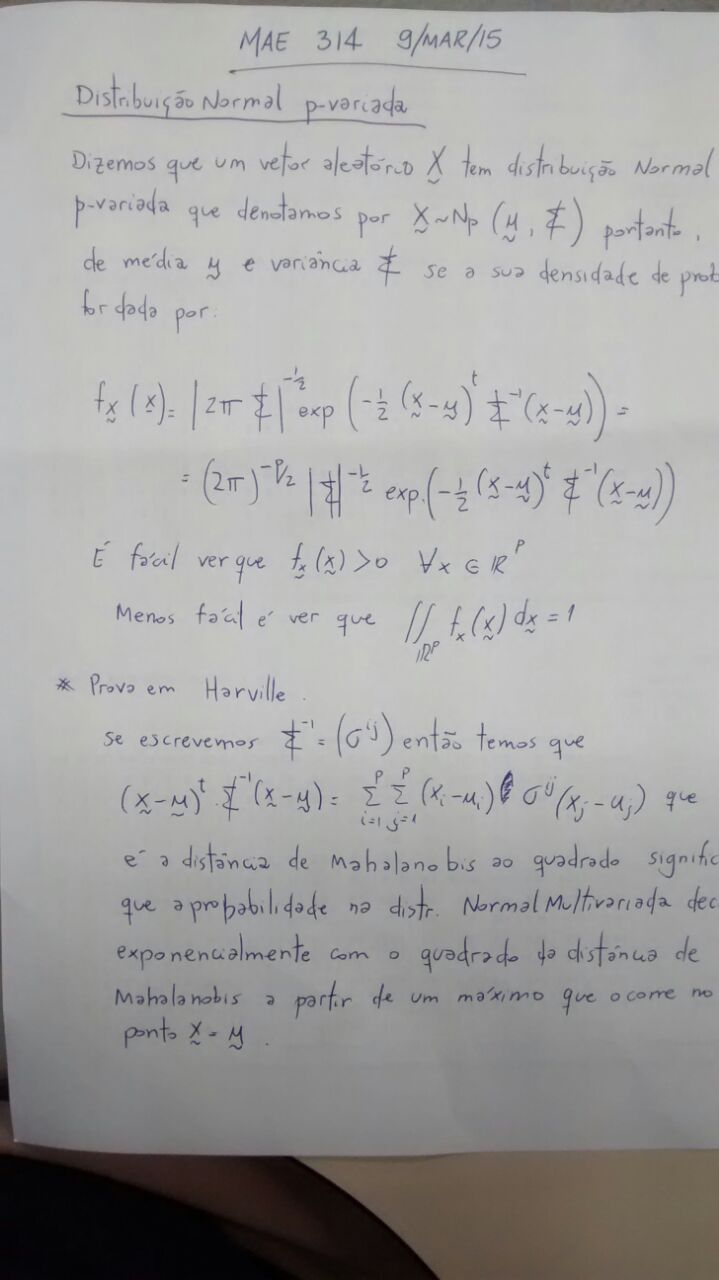 MAE 314 9/MAR/15
Distribuição Normal p-variada
Dizemos que um vetor aleatório X̰ tem distribuição Normal
p-variada que denotamos por X̰ ~ Np (μ̰, Σ) portanto,
de média μ̰ e variância Σ se a sua densidade de prob
for dada por:
f_x̰ (x̰) = |2π Σ|^{-1/2} exp (-1/2 (x̰-μ̰)^t Σ^{-1} (x̰-μ̰)) =
= (2π)^{-p/2} |Σ|^{-1/2} exp. (-1/2 (x̰-μ̰)^t Σ^{-1} (x̰-μ̰))
É fácil ver que f_x̰ (x̰) > 0 ∀x ∈ ℝ^p
Menos fácil é ver que ∬_{ℝ^p} f_x (x̰) dx̰ = 1
* Prova em Harville.
Se escrevemos Σ^{-1} = (σ^{ij}) então temos que
(x̰-μ̰)^t . Σ^{-1} (x̰-μ̰) = Σ_{i=1}^p Σ_{j=1}^p (x_i-μ_i) σ^{ij} (x_j-μ_j) que
é a distância de Mahalanobis ao quadrado signific
que a probabilidade na distr. Normal Multivariada dec
exponencialmente com o quadrado da distância de
Mahalanobis a partir de um máximo que ocorre no
ponto x̰ = μ̰.